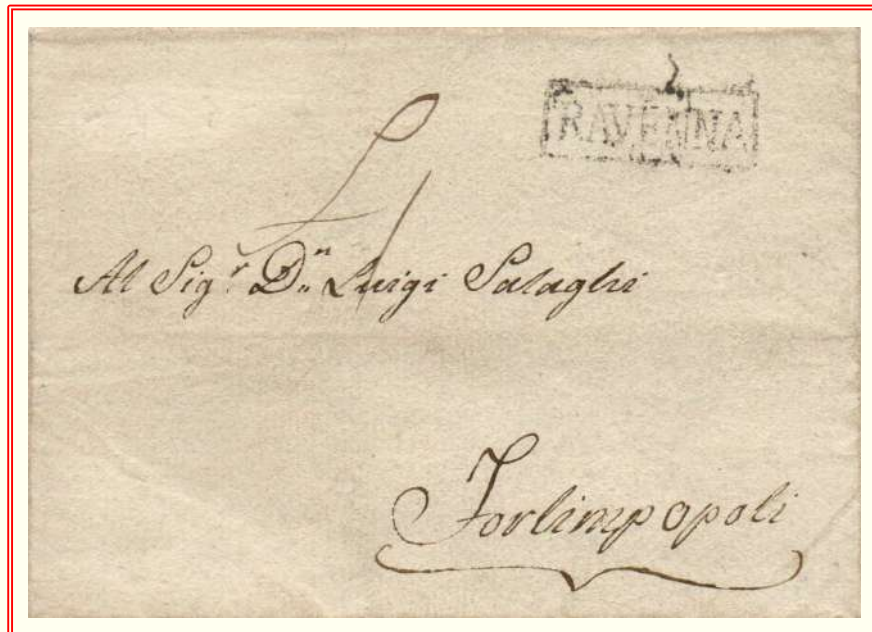 RAVENNA
Al Sig.r D.n Luigi Salaghi
Forlimpopoli